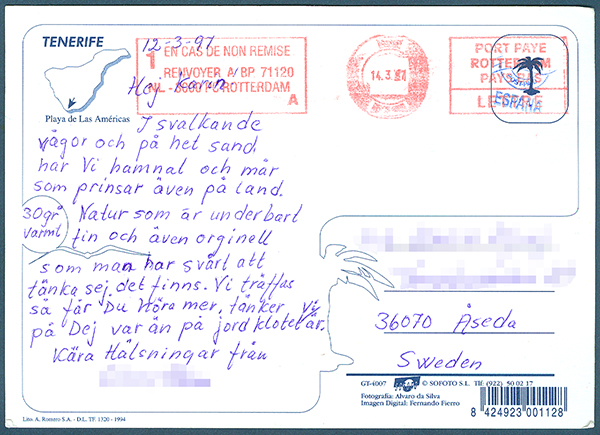 TENERIFE
Playa de Las Américas
12-3-97
1 EN CAS DE NON REMISE
RENVOYER A/BP 71120
ROTTERDAM
A
14.3.97
PORT PAYE
ROTTERDAM
PAYS-BAS
ESPAÑA
Hej Karin
I svalkande
vågor och på het sand,
har Vi hamnat och mår
som prinsar även på land.
30gr
varmt
Natur som är underbart
fin och även orginell
som man har svårt att
tänka sej det finns. Vi träffas
så får Du Höra mer, tänker vi
på Dej var än på jordklotet är.
Kära Hälsningar från
36070 Åseda
Sweden
GT-4007 © SOFOTO S.L. Tlf: (922) 50 02 17
Fotografía: Alvaro da Silva
Imagen Digital: Fernando Fierro
8 424923 001128
Lito. A. Romero S.A. - D.L. TF. 1320 - 1994